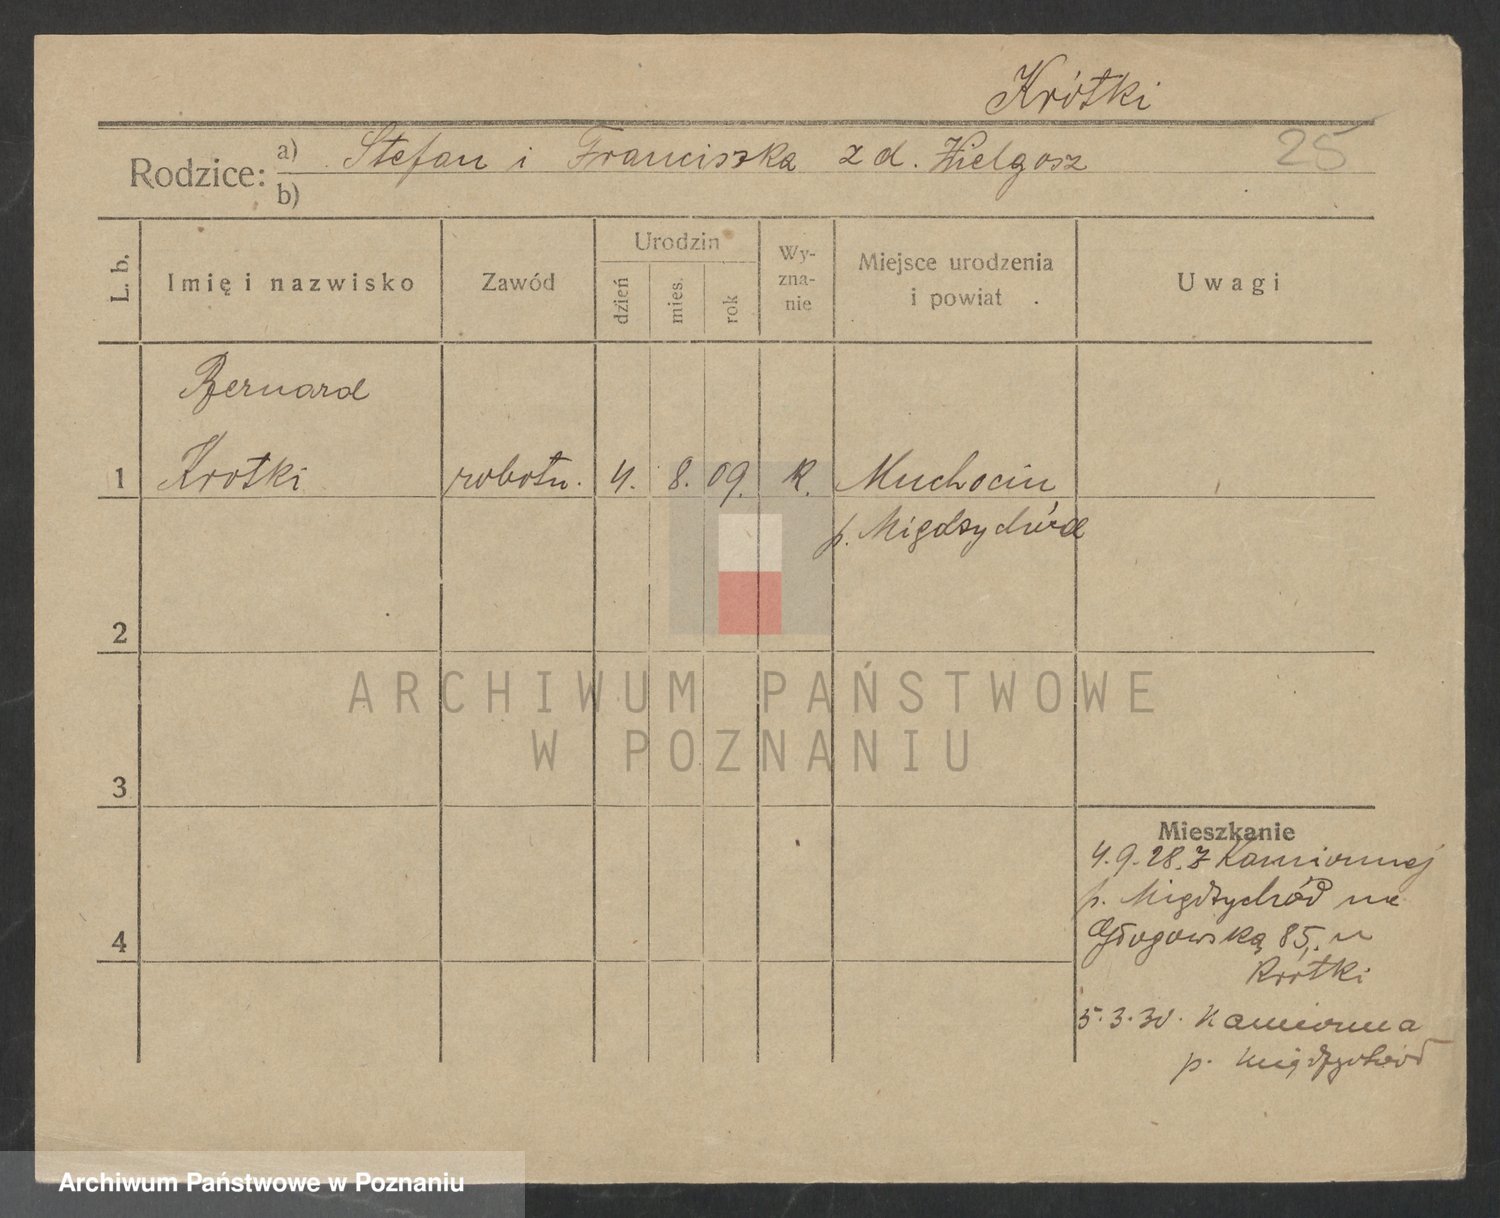 Krótki
25
Rodzice: a) Stefan i Franciszka z d. Wielgosz
b)
L. b. Imię i nazwisko Zawód Urodzin dzień mies. rok Wy-zna-nie Miejsce urodzenia i powiat Uwagi
Bernard
1 Krotki robotn. 4. 8. 09. R. Muchocin
p. Międzychód
2
ARCHIWUM PAŃSTWOWE
W POZNANIU
3
Mieszkanie
4.9.28. z Kamionnej
p. Międzychód na
4 Głogowska 85, u
Krótki
5.3.30. Kamionna
p. Międzychód
Archiwum Państwowe w Poznaniu